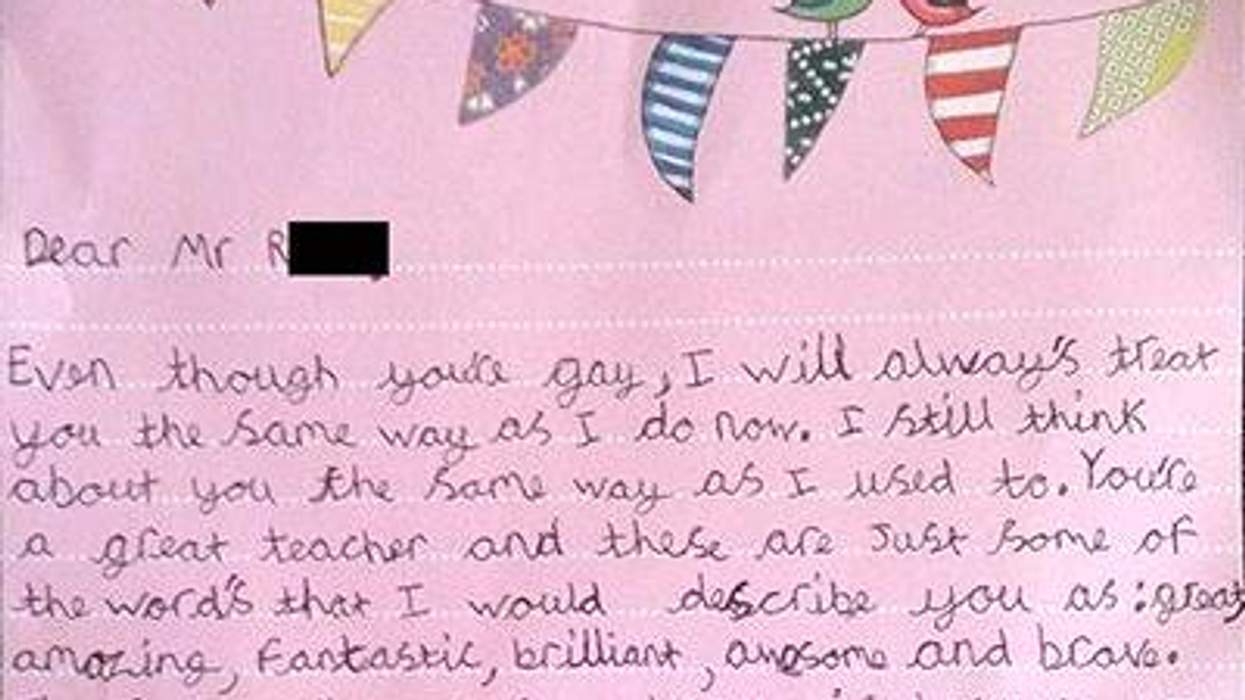 Dear Mr R
Even though you're gay, I will always's treat
you the same way as I do now. I still think
about you the same way as I used to. You're
a great teacher and these are just some of
the word's that I would describe you as: great,
amazing, fantastic, brilliant, awesome and brave.